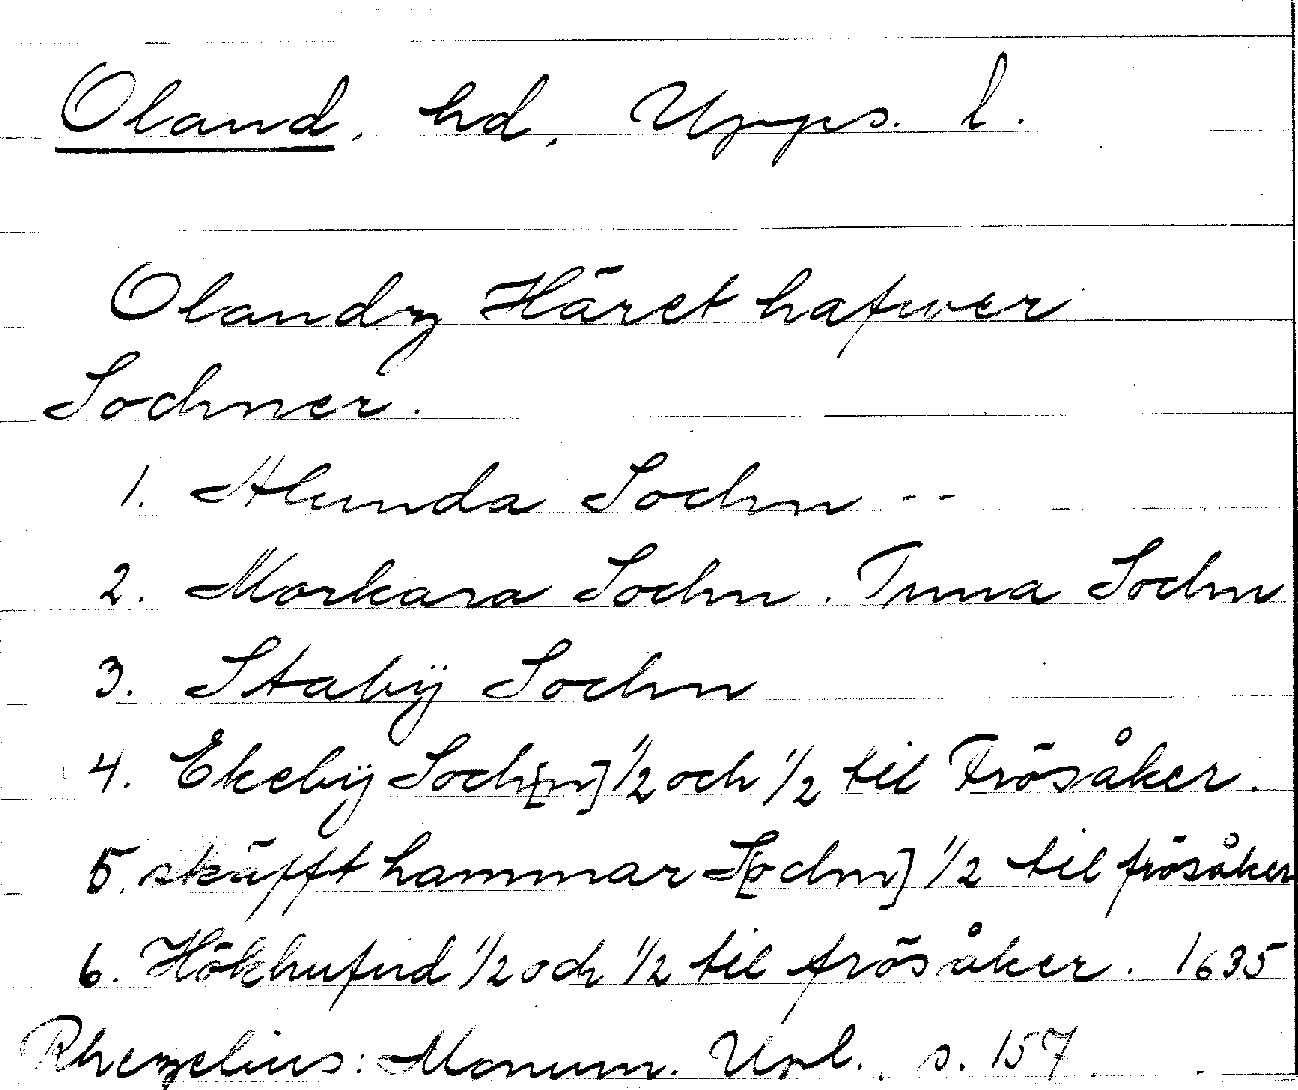 Oland. hd. Upps. l.
Olandz Häret hafwer
Sochner.
1. Alunda Sochn --
2. Morkara Sochn. Tuna Sochn
3. Stabÿ Sochn
4. Ekebÿ Soch[n] 1/2 och 1/2 til Frösåker.
5. skäfft hammar S[ochn] 1/2 til frösåker
6. Hökhufud 1/2 och 1/2 til frösåker. 1635
Rhezelius: Monum. Upl. s. 157